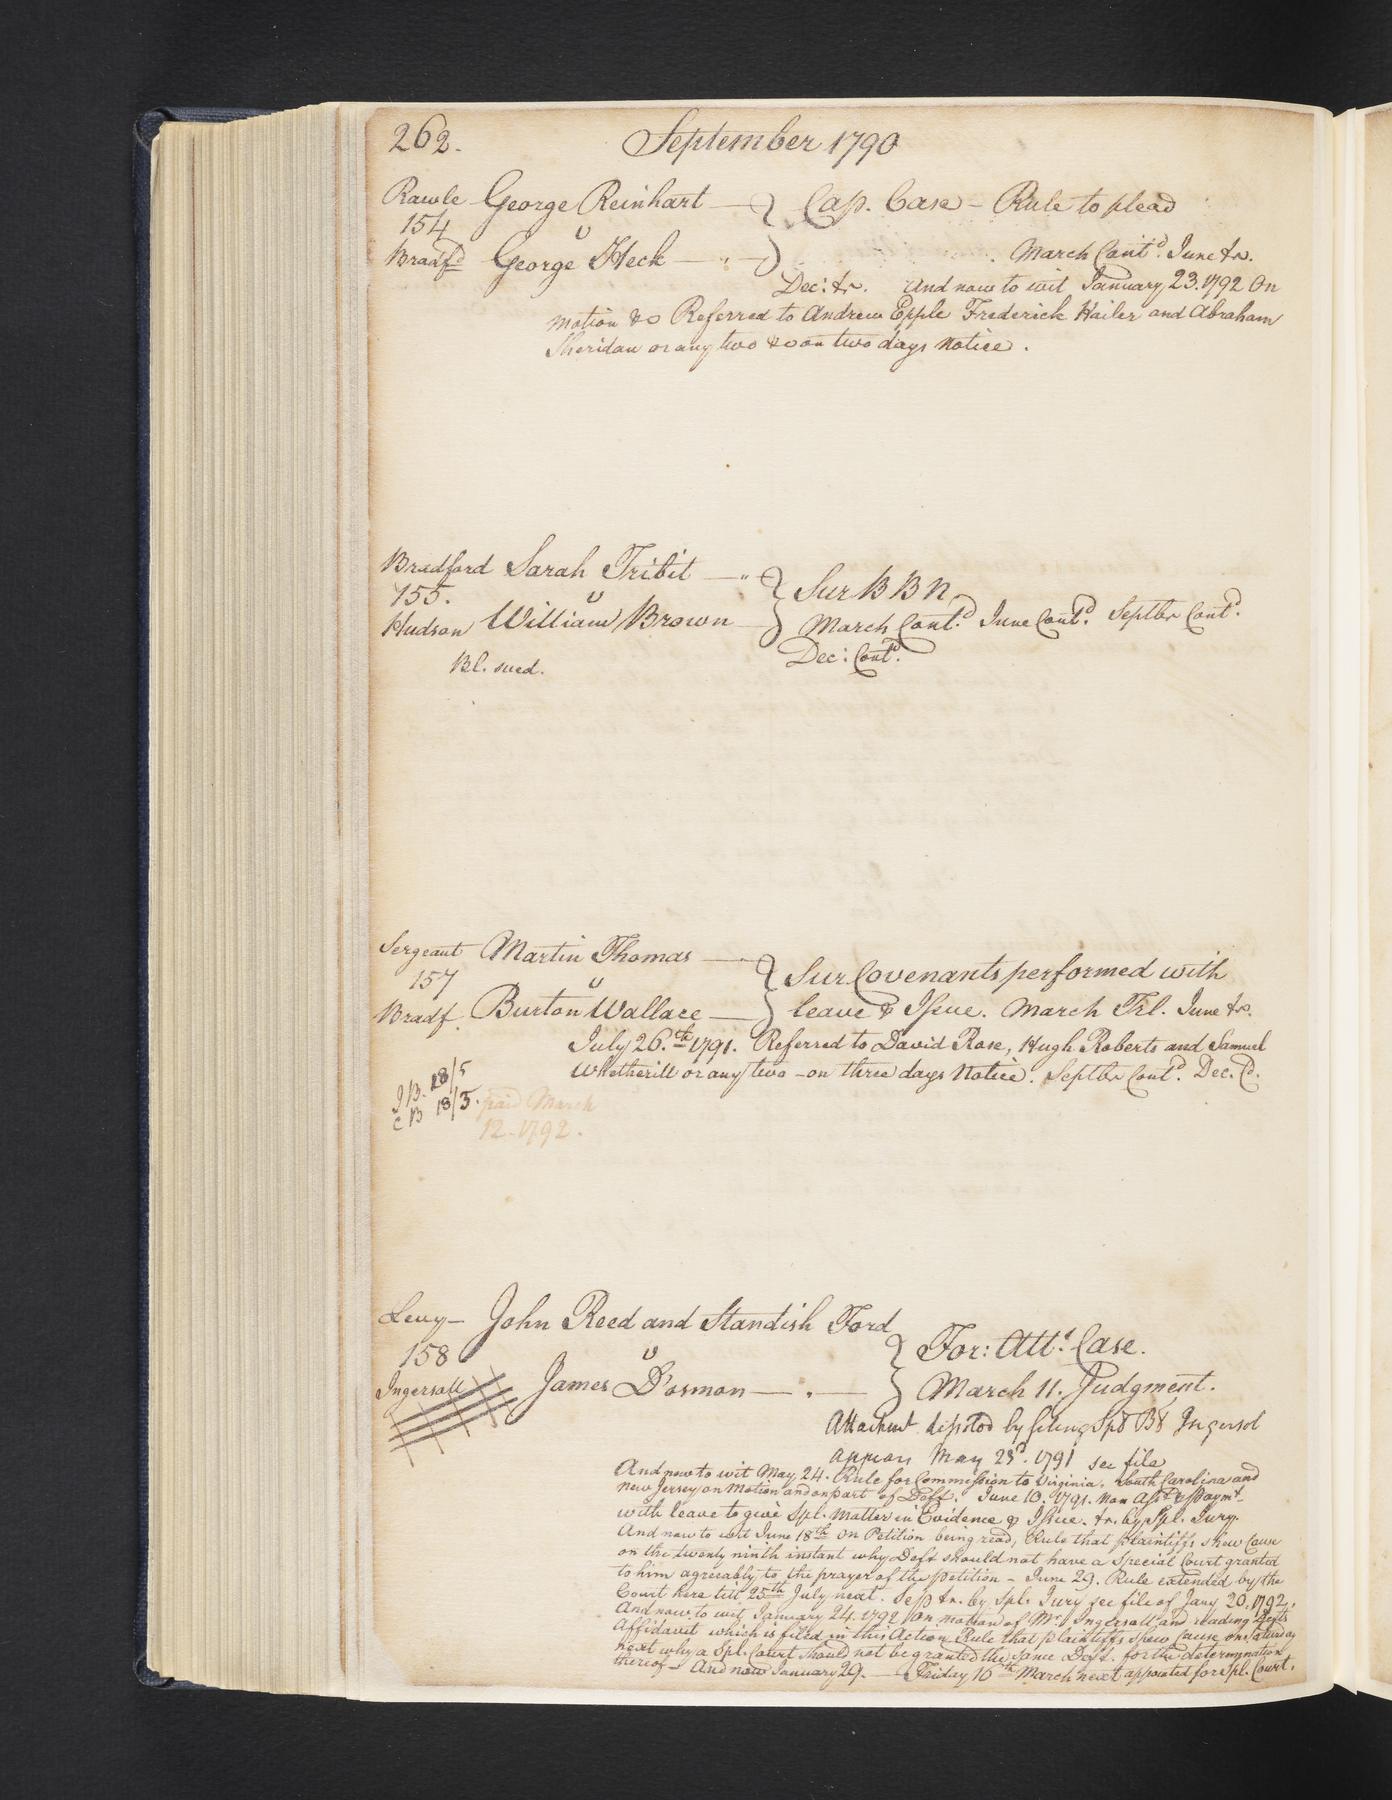 262.
September 1790
Rawle George Reinhart Cap. Case - Rule to plead
154 v
Bradfd George Heck March Contd. June &c.
Dec: &c. And now to wit January 23. 1792 On
motion &c Referred to Andrew Epple Frederick Hailer and Abraham
Sheridan or any two &c on two days Notice.
Bradford Sarah Tribit Sur B B N
155. v
Hudson William Brown March Contd. June Contd. Septbr Contd.
Bl. sued. Dec: Contd.
Sergeant Martin Thomas Sur Covenants performed with
157 v
Bradf. Burton Wallace leave & Issue. March Trl. June &c.
July 26.th 1791. Referred to David Rose, Hugh Roberts and Samuel
Whetherill or any two - on three days Notice. Septbr Contd. Dec. Cd.
JB. 18/5
CB 18/3. paid March
12. 1792.
Levy - John Reed and Standish Ford For: Att.t Case.
158 v
Ingersoll James D'osmon March 11. Judgment.
Attachmt dissolved by filing Spl Bl Ingersol
appears May 23d. 1791 see file
And now to wit May 24. Rule for Commission to Virginia, South Carolina and
New Jersey on Motion and on part of Deft. June 10. 1791. Non Asst & Paymt.
with leave to give Spl. Matter in Evidence & Issue. tr. by Spl. Jury.
And now to wit June 18th On Petition being read, Rule that plaintiffs shew Cause
on the twenty ninth instant why Deft should not have a Special Court granted
to him agreeably to the prayer of the petition - June 29. Rule extended by the
Court here till 25th July next. Sep tr. by Spl. Jury see file of Jany 20. 1792.
And now to wit January 24. 1792 On motion of Mr. Ingersoll and reading Defts
Affidavit which is filed in this Action Rule that plaintiffs shew Cause on Saturday
next why a Spl. Court should not be granted the same Deft. for the determination
thereof - And now January 29. - Friday 16th March next appointed for Spl. Court.